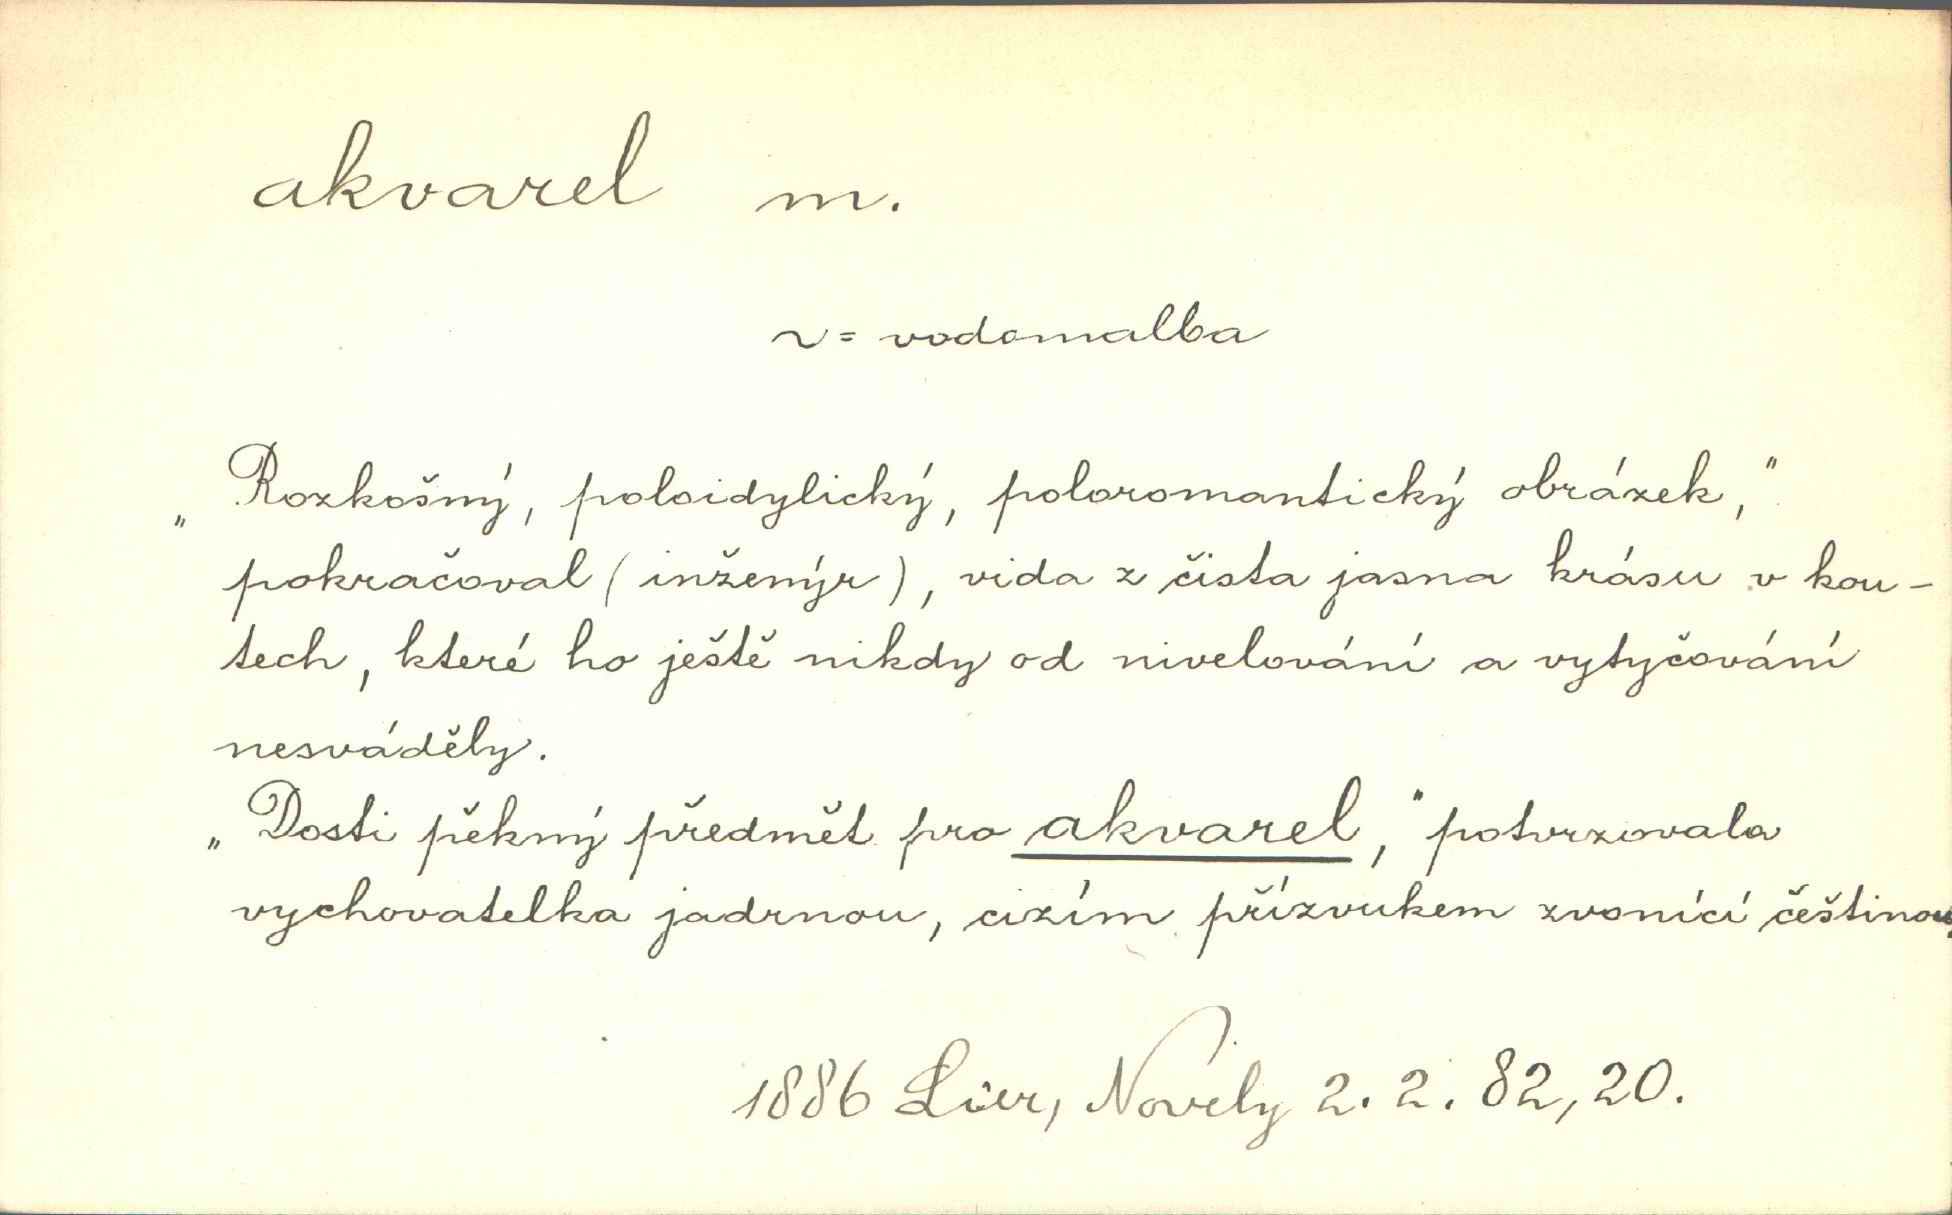 akvarel m.
~ = vodomalba
„Rozkošný, poloidylický, poloromantický obrázek,“
pokračoval (inženýr), vida z čista jasna krásu v kou-
tech, které ho ještě nikdy od nivelování a vytyčování
nesváděly.
„Dosti pěkný předmět pro akvarel,“ potvrzovala
vychovatelka jadrnou, cizím přízvukem zvonící češtinou.
1886 Lier, Novely 2. 2. 82, 20.